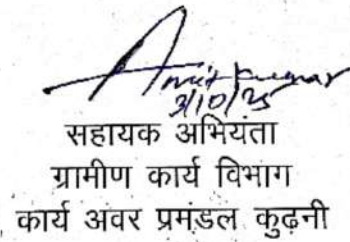 Amit Kumar
3/10/25
सहायक अभियंता
ग्रामीण कार्य विभाग
कार्य अवर प्रमंडल कुढ़नी